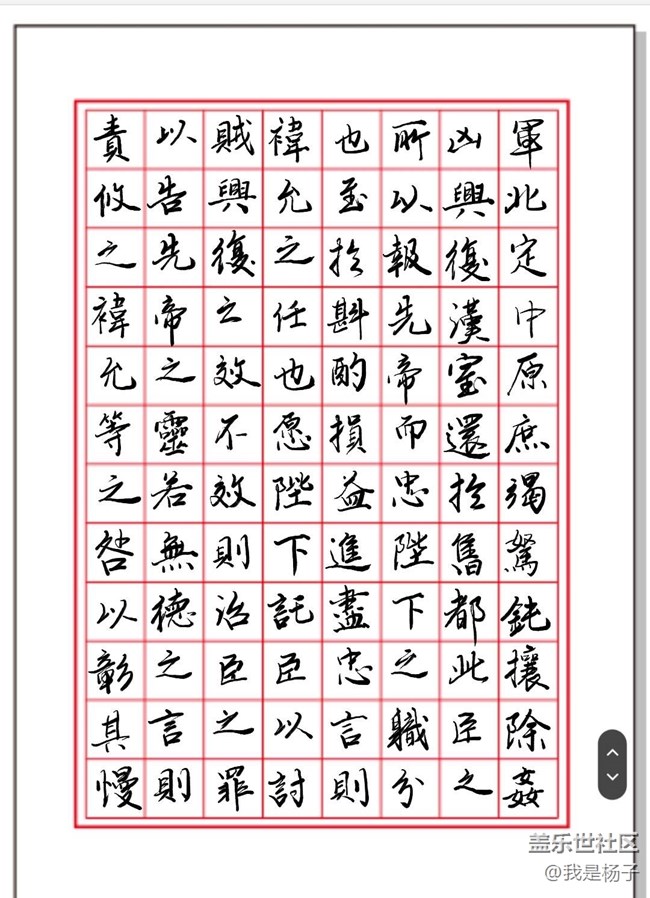 軍北定中原庶竭駑鈍攘除姦
凶興復漢室還於舊都此臣之
所以報先帝而忠陛下之職分
也至於斟酌損益進盡忠言則
褘允之任也愿陛下託臣以討
賊興復之效不效則治臣之罪
以告先帝之靈若無德之言則
責攸之褘允等之咎以彰其慢
盖乐世社区
@我是杨子